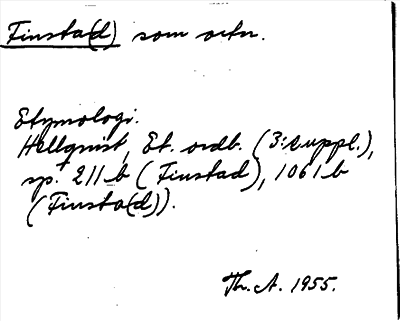 Finsta(d) som ortn.
Etymologi.
Hellquist, Et. ordb. (3:e uppl.),
sp. 211 b (Finstad), 1061 b
(Finsta(d)).
Th. A. 1955.